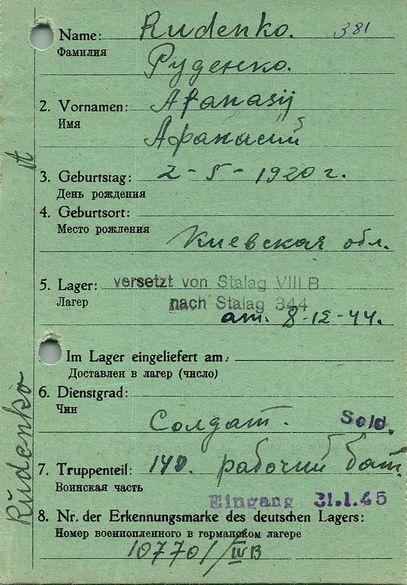 Name: Rudenko. 381
Фамилия
Руденко.
2. Vornamen: Afanasij
Имя
Афанасий
3. Geburtstag: 2-5-1920 г.
День рождения
4. Geburtsort:
Место рождения
Киевская обл.
5. Lager: versetzt von Stalag VIII B
Лагер nach Stalag 344
am. 8-12-44.
Im Lager eingeliefert am:
Доставлен в лагер (число)
6. Dienstgrad:
Чин
Солдат. Sold.
7. Truppenteil: 140. рабочий бат.
Воинская часть
Eingang 31.1.45
8. Nr. der Erkennungsmarke des deutschen Lagers:
Номер военнопленного в германском лагере
107701/IVB
Rudenko